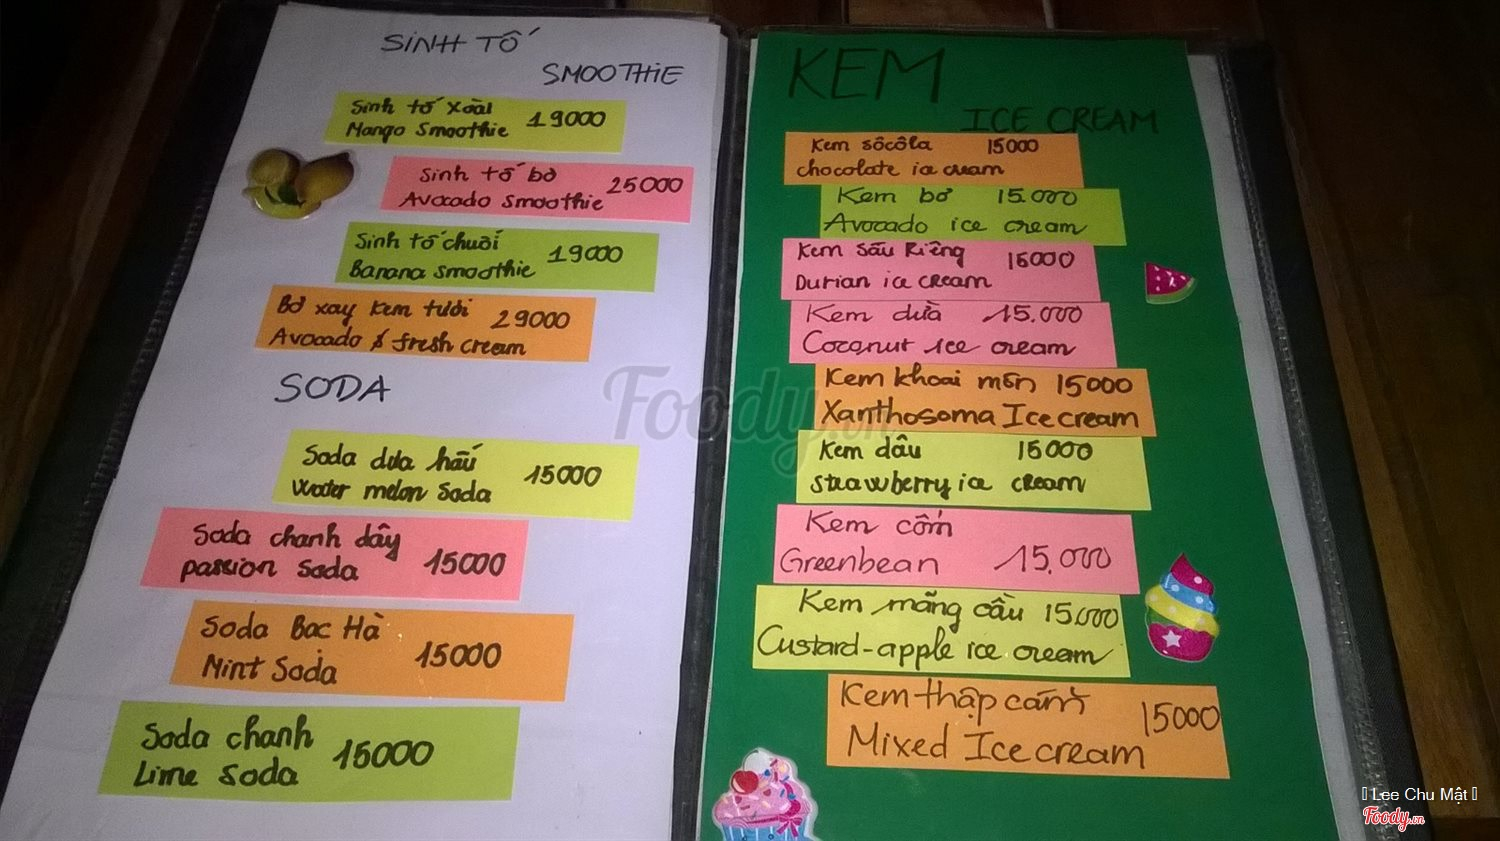 SINH TỐ
SMOOTHIE
Sinh tố xoài
Mango Smoothie 19000
Sinh tố bơ
Avocado smoothie 25000
Sinh tố chuối
Banana smoothie 19000
Bơ xay kem tươi
Avocado & fresh cream 29000
SODA
Soda dưa hấu
Water melon Soda 15000
Soda chanh dây
passion soda 15000
Soda Bạc Hà
Mint Soda 15000
Soda chanh
Lime soda 15000
KEM
ICE CREAM
Kem sôcôla 15000
chocolate ice cream
Kem bơ 15.000
Avocado ice cream
Kem sầu Riêng 15000
Durian ice cream
Kem dừa 15.000
Coconut ice cream
Kem khoai môn 15000
Xanthosoma Ice cream
Kem dâu 15000
strawberry ice cream
Kem cốm
Greenbean 15.000
Kem mãng cầu 15.000
Custard-apple ice cream
Kem thập cẩm
Mixed Ice cream 15000
Foody.vn
Lee Chu Mật
Foody.vn